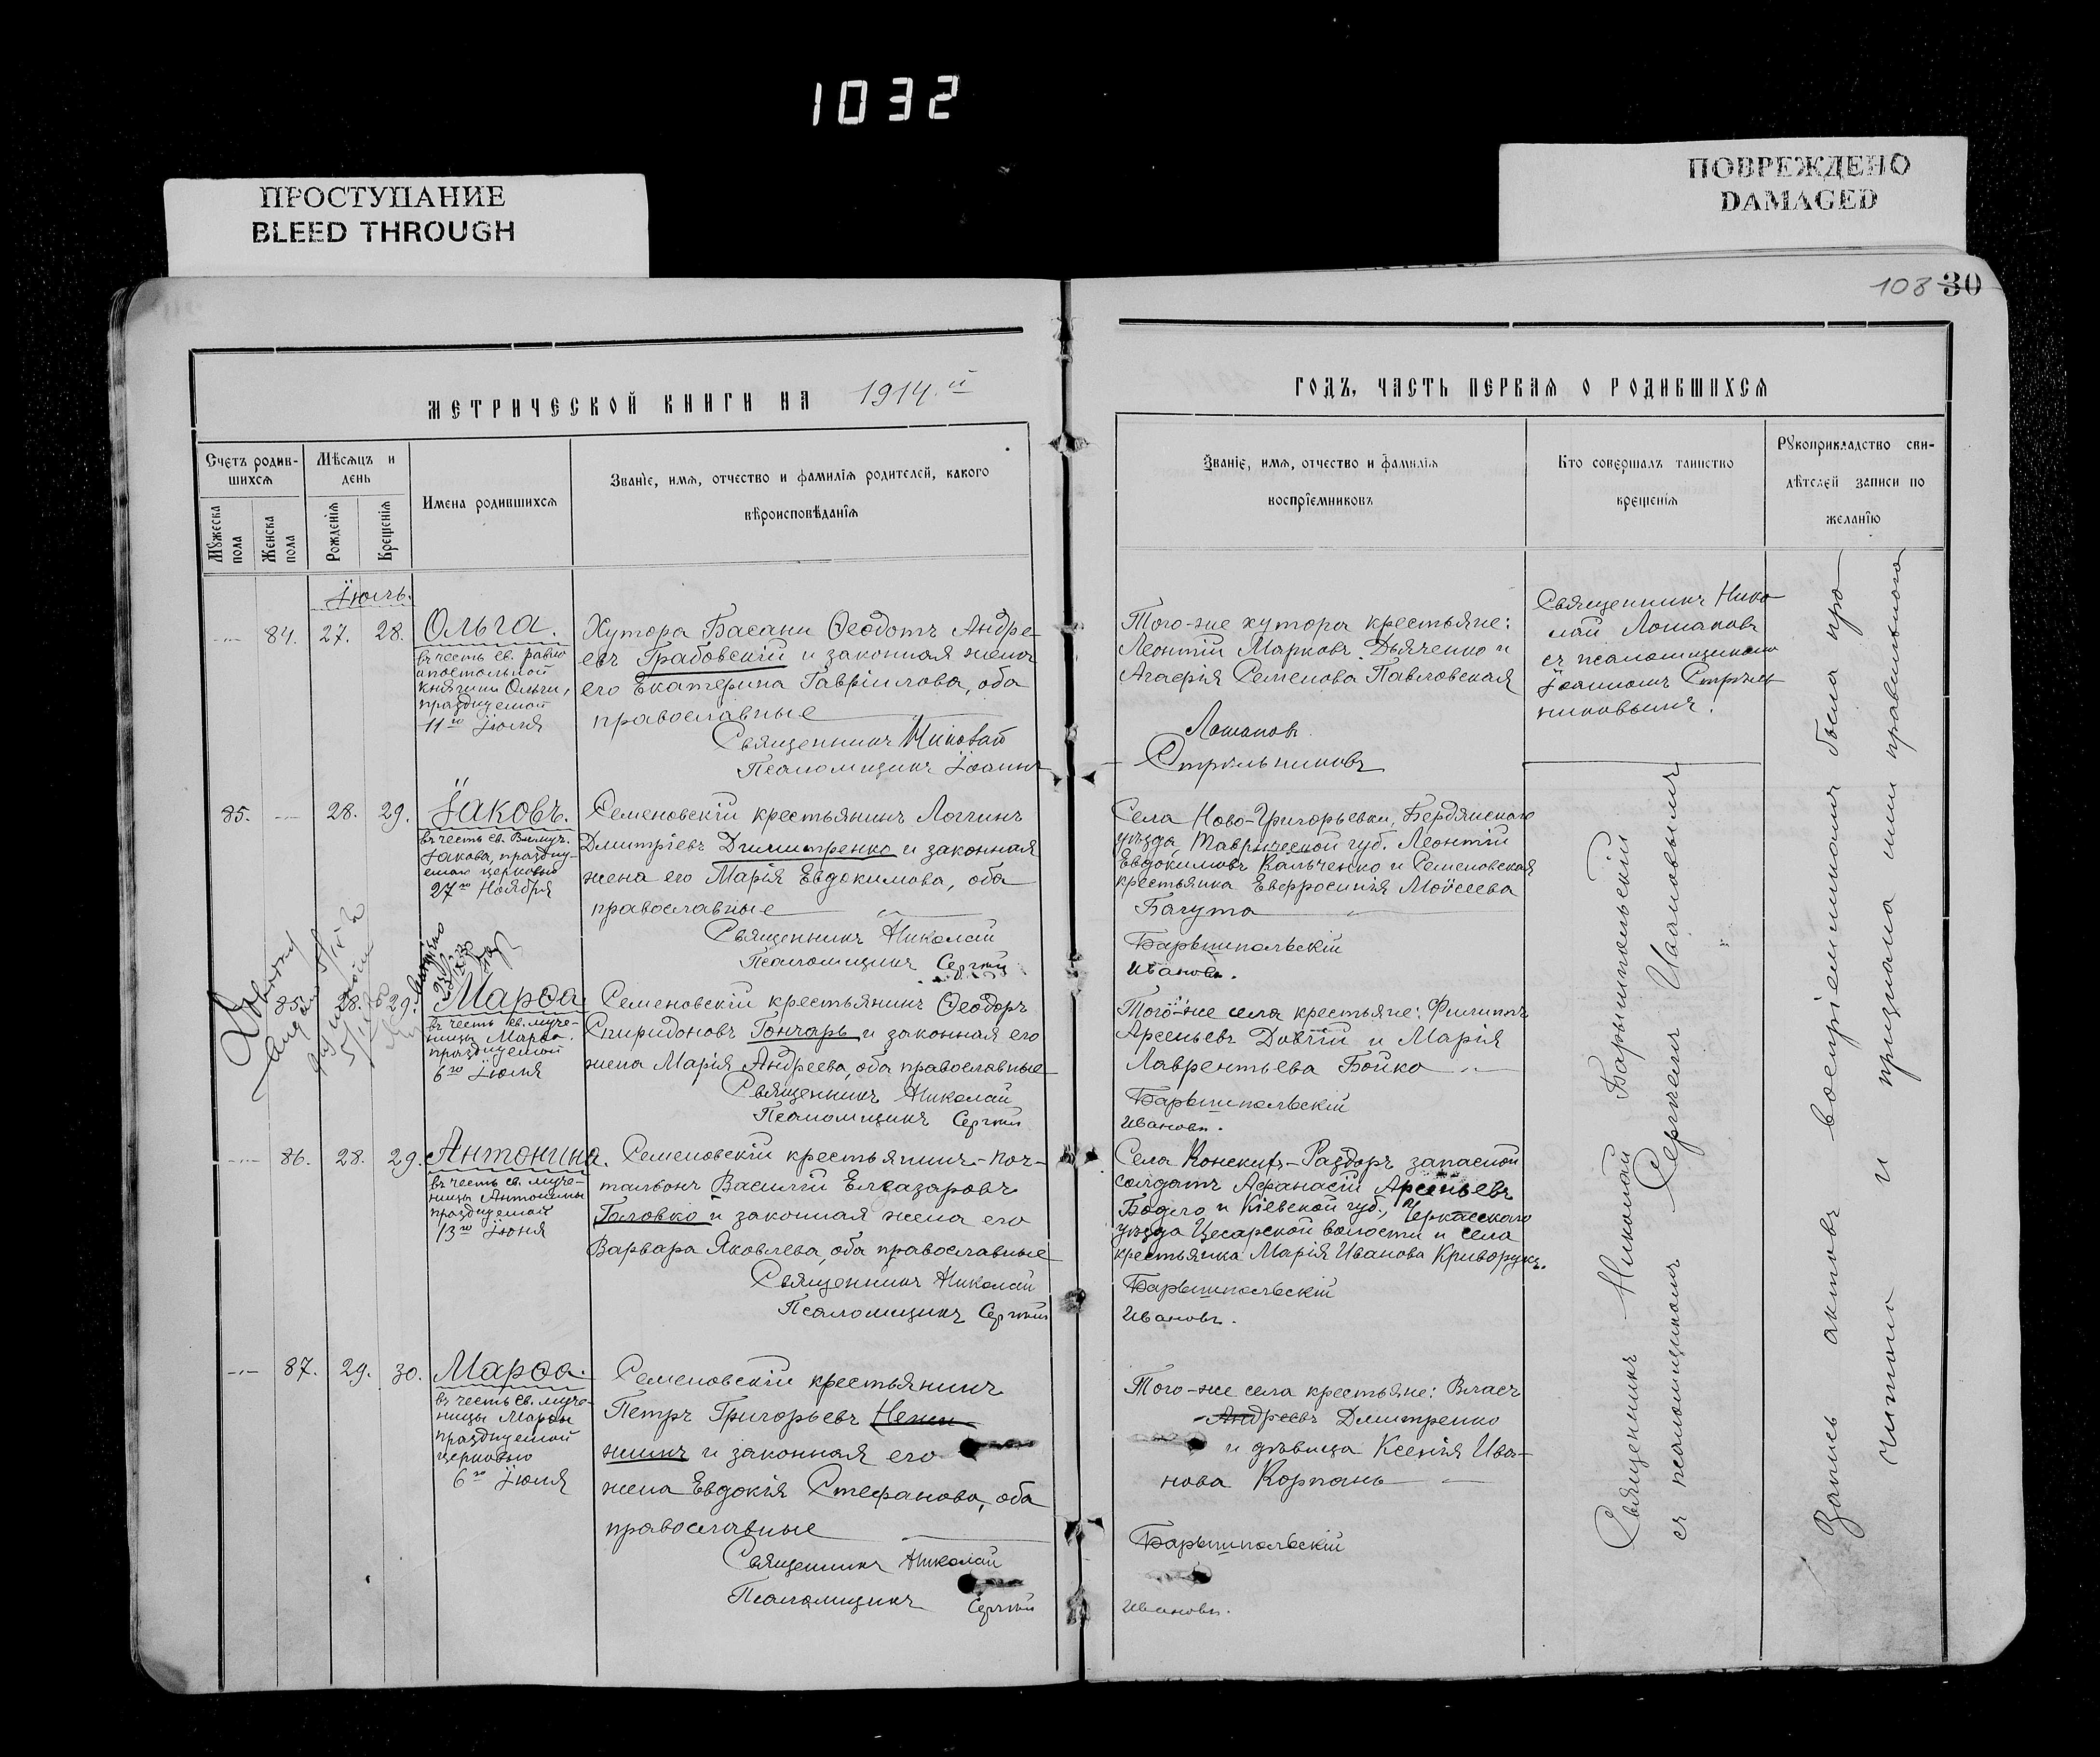 1032
ПРОСТУПАНИЕ
BLEED THROUGH
ПОВРЕЖДЕНО
DAMAGED
108 30
МЕТРИЧЕСКОЙ КНИГИ НА 1914.й
ГОДЪ, ЧАСТЬ ПЕРВАЯ О РОДИВШИХСЯ
Счетъ родив-
шихся
Мужеска пола
Женска пола
Мѣсяцъ и
день
Рожденія
Крещенія
Имена родившихся
Званіе, имя, отчество и фамилія родителей, какого
вѣроисповѣданія
Званіе, имя, отчество и фамилія
воспріемниковъ
Кто совершалъ таинство
крещенія
Рукоприкладство сви-
дѣтелей записи по
желанію
Іюль.
84. 27. 28.
Ольга.
въ честь св. равно
апостольной
княгини Ольги,
празднуемой
11го Іюля
Хутора Басани Ѳеодотъ Андре-
евъ Грабовскій и законная жена
его Екатерина Гавріилова, оба
православные
Священникъ Николай
Псаломщикъ Іоаннъ
Того-же хутора крестьяне:
Леонтій Марковъ Дьяченко и
Агафія Семенова Павловская
Ломаковъ
Стрѣльниковъ
Священникъ Нико-
лай Ломаковъ
съ псаломщикомъ
Іоанномъ Стрѣль-
никовымъ.
85. 28. 29.
Іаковъ.
въ честь св. Вмуч.
Іакова, праздну-
емаго церковью
27го Ноября
Семеновскій крестьянинъ Логгинъ
Дмитріевъ Дмитренко и законная
жена его Марія Евдокимова, оба
православные
Священникъ Николай
Псаломщикъ Сергій
Села Ново-Григорьевки, Бердянскаго
уѣзда, Таврической губ. Леонтій
Евдокимовъ Кальченко и Семеновская
крестьянка Евфросинія Моѵсеева
Багута
Барышпольскій
Ивановъ.
85. 28. 29.
Марѳа
въ честь св. муче-
ницы Марѳы.
празднуемой
6го Іюля
Семеновскій крестьянинъ Ѳеодоръ
Спиридоновъ Гончаръ и законная его
жена Марія Андреева, оба православные
Священникъ Николай
Псаломщикъ Сергій
Того-же села крестьяне: Филиппъ
Арсеньевъ Довгій и Марія
Лаврентьева Бойко
Барышпольскій
Ивановъ.
86. 28. 29.
Антонина.
въ честь св. муче-
ницы Антонины
празднуемой
13го Іюня
Семеновскій крестьянинъ-поч-
тальонъ Василій Елеазаровъ
Головко и законная жена его
Варвара Яковлева, оба православные
Священникъ Николай
Псаломщикъ Сергій
Села Конскихъ-Раздоръ запасной
солдатъ Афанасій Арсеньевъ
и Кіевской губ., Черкасскаго
уѣзда волости и села
крестьянка Марія Иванова
Барышпольскій
Ивановъ.
87. 29. 30.
Марѳа.
въ честь св. муче-
ницы Марѳы
празднуемой
церковью
6го Іюля
Семеновскій крестьянинъ
Петръ Григорьевъ
и законная его
жена Евдокія Стефанова, оба
православные
Священникъ Николай
Псаломщикъ Сергій
Того-же села крестьяне: Власъ
Андреевъ Дмитренко
и дѣвица Ксенія Ива-
нова Корпань
Барышпольскій
Ивановъ.
Священникъ Николай Барышпольскій
съ псаломщикомъ Сергіемъ Ивановымъ
Запись актовъ воспріемникамъ была про-
читана и признана ими правильною